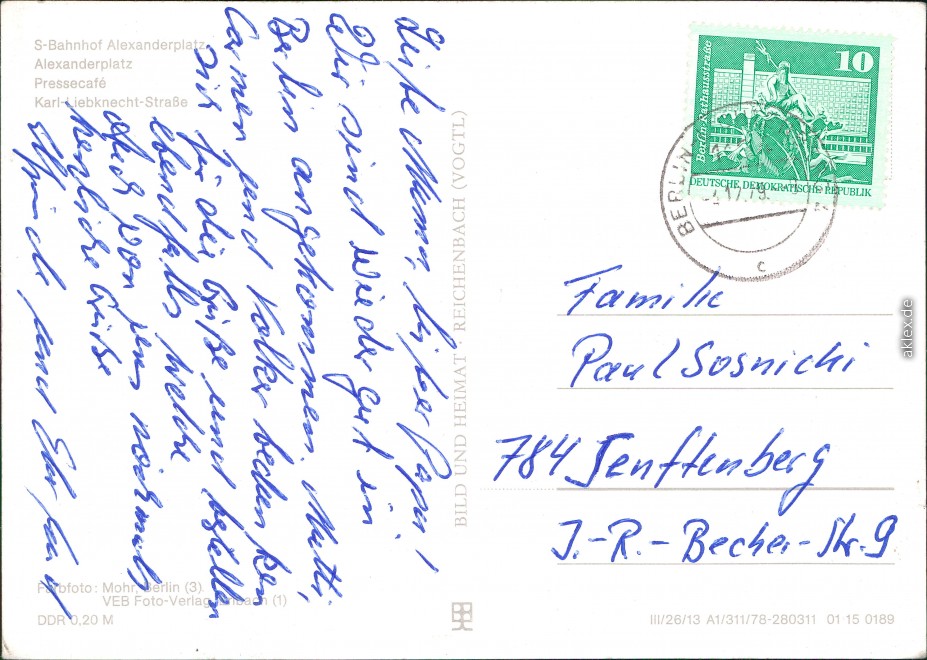 S-Bahnhof Alexanderplatz
Alexanderplatz
Pressecafé
Karl-Liebknecht-Straße
Liebe Mama, lieber Papa!
Wir sind wieder gut in
Berlin angekommen. Mutti,
Carmen und Volker bedanken
sich für die Grüße und bestellen
ebenfalls welche
Auch von uns nochmals
herzliche Grüße
und
Farbfoto: Mohr, Berlin (3)
VEB Foto-Verlag Erlbach (1)
DDR 0,20 M
BILD UND HEIMAT · REICHENBACH (VOGTL)
10
Berlin Rathausstraße
DEUTSCHE DEMOKRATISCHE REPUBLIK
BERLIN
c
Familie
Paul Sosnicki
784 Senftenberg
J.-R.-Becher-Str. 9
III/26/13 A1/311/78-280311 01 15 0189
aklex.de